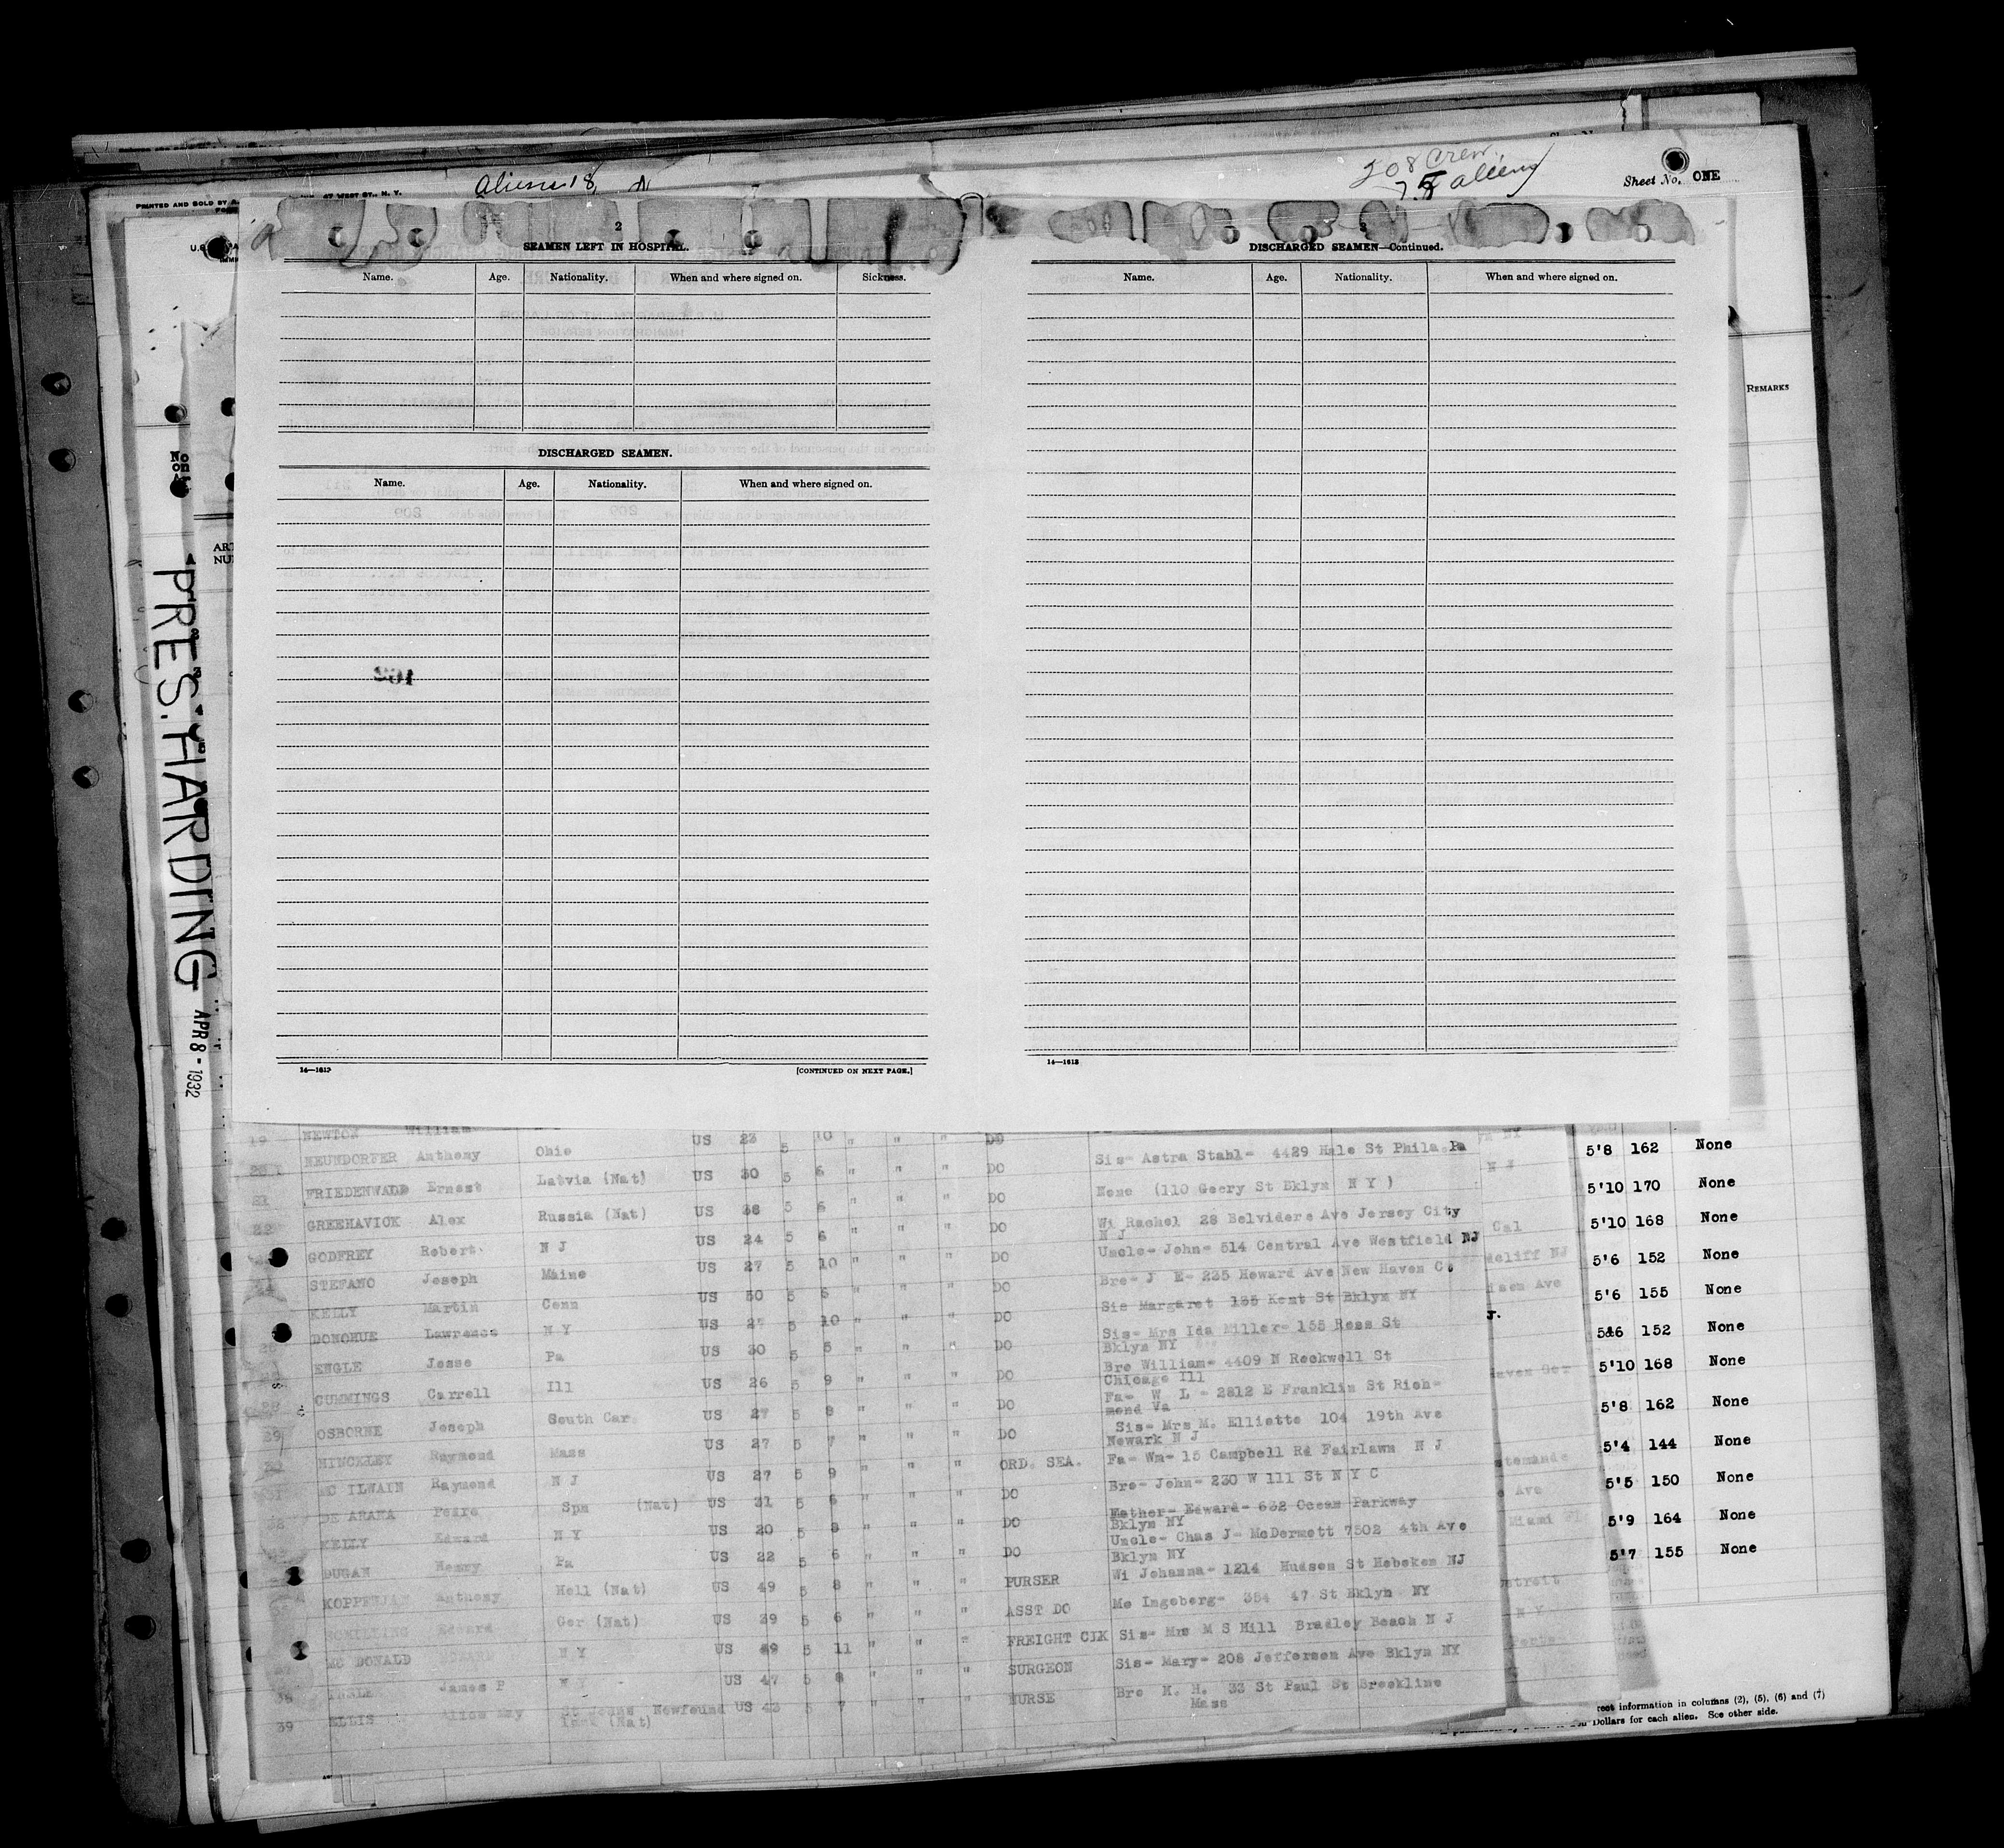 Aliens 18
208 Crew
Sheet No. ONE
PRINTED AND SOLD BY
47 WEST ST., N. Y.
2
SEAMEN LEFT IN HOSPITAL.
Name. Age. Nationality. When and where signed on. Sickness.
DISCHARGED SEAMEN.
Name. Age. Nationality. When and where signed on.
14—1613
[CONTINUED ON NEXT PAGE.]
3
DISCHARGED SEAMEN—Continued.
Name. Age. Nationality. When and where signed on.
14—1613
REMARKS
No on
PRES. HARDING APR 8 - 1932
19 NEWTON William US 23 5 10 " " " DO
NEUNDORFER Anthony Ohio US 30 5 6 " " " DO Sis- Astra Stahl- 4429 Hale St Phila Pa
21 FRIEDENWALD Ernest Latvia (Nat) US 38 5 6 " " " DO None (110 Geery St Bklyn N Y )
22 GREEHAVICK Alex Russia (Nat) US 24 5 6 " " " DO Wi Rachel 28 Belvidere Ave Jersey City
N J
GODFREY Robert N J US 27 5 10 " " " DO Uncle- John- 514 Central Ave Westfield NJ
STEFANO Joseph Maine US 30 5 6 " " " DO Bro- J E- 235 Howard Ave New Haven C
KELLY Martin Conn US 27 5 10 " " " DO Sis Margaret 155 Kent St Bklyn NY
DONOHUE Lawrence N Y US 30 5 5 " " " DO Sis- Mrs Ida Miller- 155 Ross St
Bklyn NY
ENGLE Jesse Pa US 26 5 9 " " " DO Bro William- 4409 N Rockwell St
Chicago Ill
CUMMINGS Carrell Ill US 27 5 8 " " " DO Fa- W L - 2812 E Franklin St Rich-
mond Va
29 OSBORNE Joseph South Car US 27 5 7 " " " DO Sis- Mrs M. Elliette 104 19th Ave
Newark N J
HINCKLEY Raymond Mass US 27 5 9 " " " ORD. SEA. Fa- Wm- 15 Campbell Rd Fairlawn N J
MC ILWAIN Raymond N J US 31 5 6 " " " DO Bro- John- 230 W 111 St N Y C
32 DE ARANA Pedro Spn (Nat) US 20 5 8 " " " DO Mother- Edward- 632 Ocean Parkway
Bklyn NY
KELLY Edward N Y US 22 5 6 " " " DO Uncle- Chas J- McDermott 7502 4th Ave
Bklyn NY
DUGAN Henry Pa US 49 5 8 " " " PURSER Wi Johanna- 1214 Hudson St Hoboken NJ
Anthony Holl (Nat) US 39 5 6 " " " ASST DO Mo Ingeborg- 354 47 St Bklyn NY
Edward Ger (Nat) US 49 5 11 " " " FREIGHT CLK Sis- Mrs M S Hill Bradley Beach N J
MC DONALD N Y US 47 5 8 " " " SURGEON Sis- Mary- 208 Jefferson Ave Bklyn NY
38 James P N Y US 43 5 7 " " " NURSE Bro M. H. 33 St Paul St Brookline
Mass
39 ELLIS Alice May St Johns Newfound
land (Nat)
5'8 162 None
5'10 170 None
5'10 168 None
5'6 152 None
5'6 155 None
5&6 152 None
5'10 168 None
5'8 162 None
5'4 144 None
5'5 150 None
5'9 164 None
5'7 155 None
N Y
N J
Cal
J.
Ave
Miami
N Y
information in columns (2), (5), (6) and (7)
Dollars for each alien. See other side.